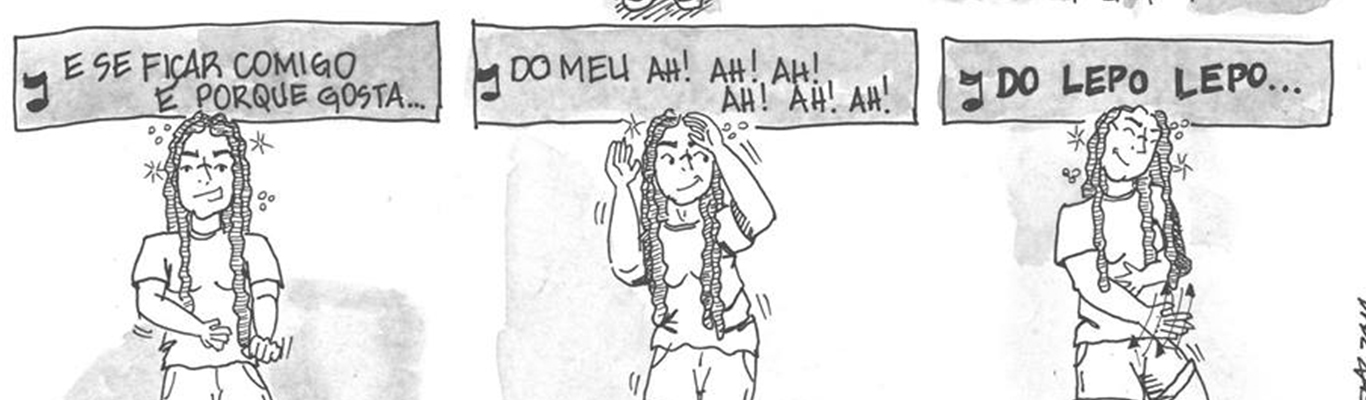 E SE FICAR COMIGO
E PORQUE GOSTA...
DO MEU AH! AH! AH!
AH! AH! AH!
DO LEPO LEPO...